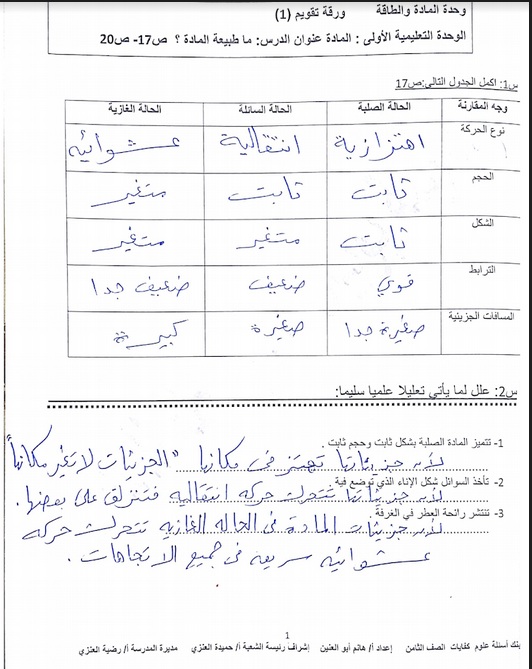 وحدة المادة والطاقة ورقة تقويم (1)
الوحدة التعليمية الأولى : المادة عنوان الدرس: ما طبيعة المادة ؟ ص17- ص20
س1: اكمل الجدول التالي:ص17
وجه المقارنة الحالة الصلبة الحالة السائلة الحالة الغازية
نوع الحركة اهتزازية انتقالية عشوائيه
الحجم ثابت ثابت متغير
الشكل ثابت متغير متغير
الترابط قوي ضعيف ضعيف جدا
المسافات الجزيئية صغيرة جدا صغيرة كبيرة
س2: علل لما يأتي تعليلا علميا سليما:
1- تتميز المادة الصلبة بشكل ثابت وحجم ثابت .
لأن جزيئاتها تهتز فى مكانها "الجزيئات لا تغير مكانها"
2- تأخذ السوائل شكل الإناء الذي توضع فية
لأن جزيئاتها تتحرك حركه انتقاليه فتنزلق على بعضها .
3- تنتشر رائحة العطر في الغرفة.
لأن جزيئات المادة فى الحاله الغازيه تتحرك حركه
عشوائيه سريعه فى جميع الاتجاهات .
1
بنك أسئلة علوم كفايات الصف الثامن إعداد أ/ هانم أبو العنين إشراف رئيسة الشعبة أ/ حميدة العنزي مديرة المدرسة أ/ رضية العنزي